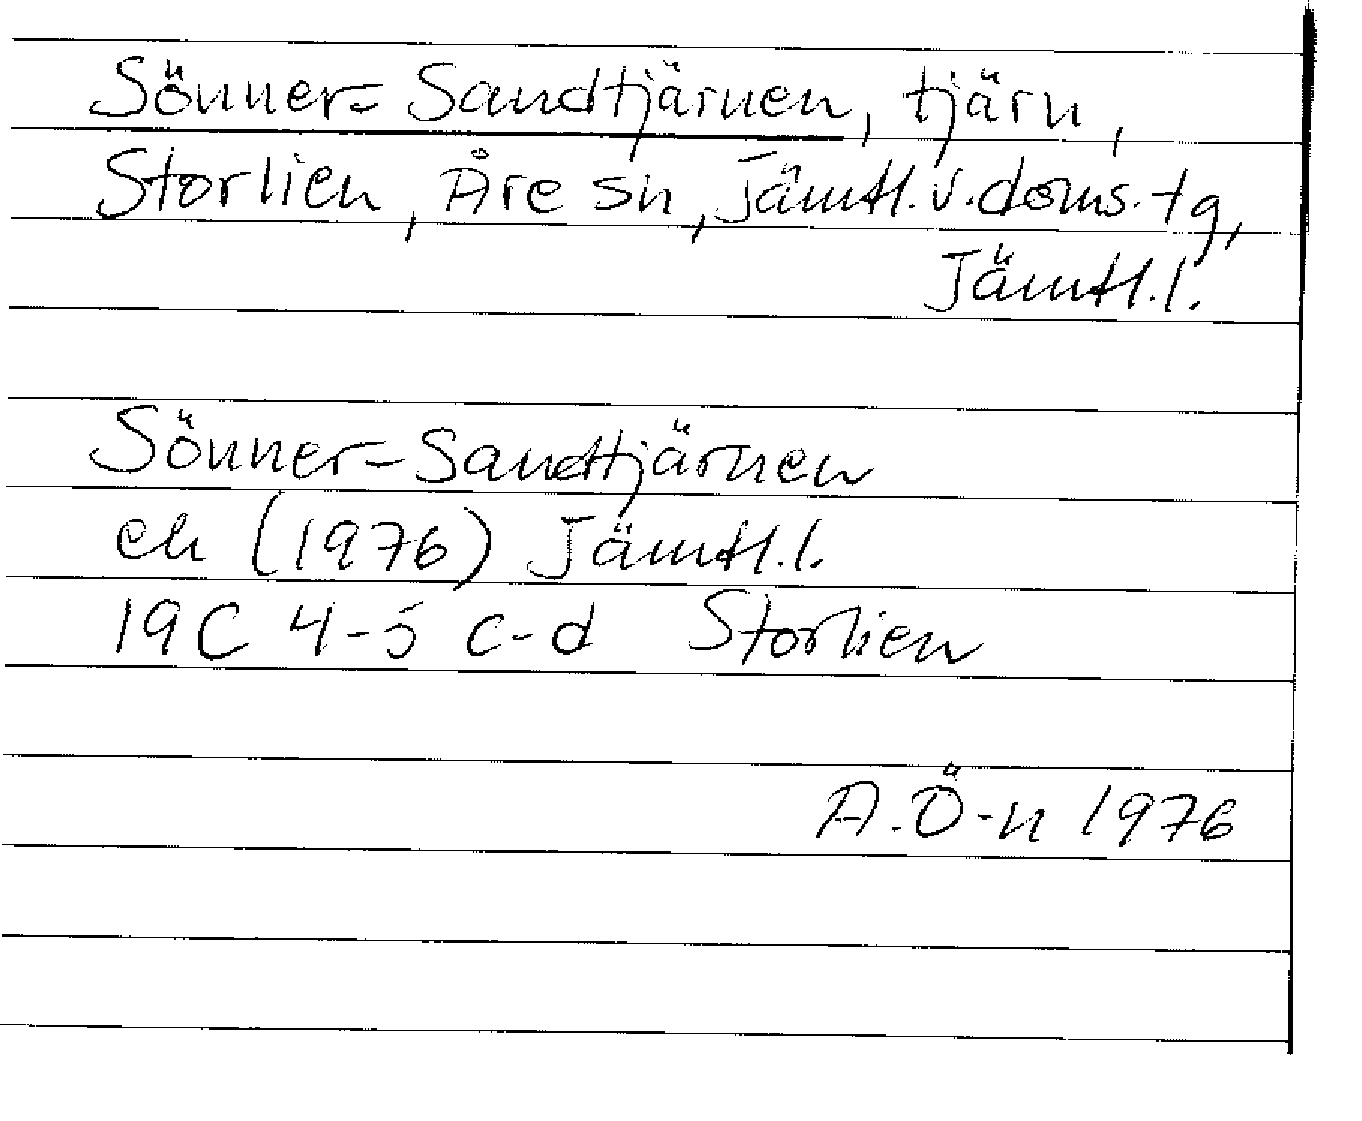 Sönner-Sandtjärnen, tjärn,
Storlien, Åre sn, Jämtl. v. doms. tg,
Jämtl. l.
Sönner-Sandtjärnen
ek (1976) Jämtl. l.
19C 4-5 c-d Storlien
A. Ö-n 1976